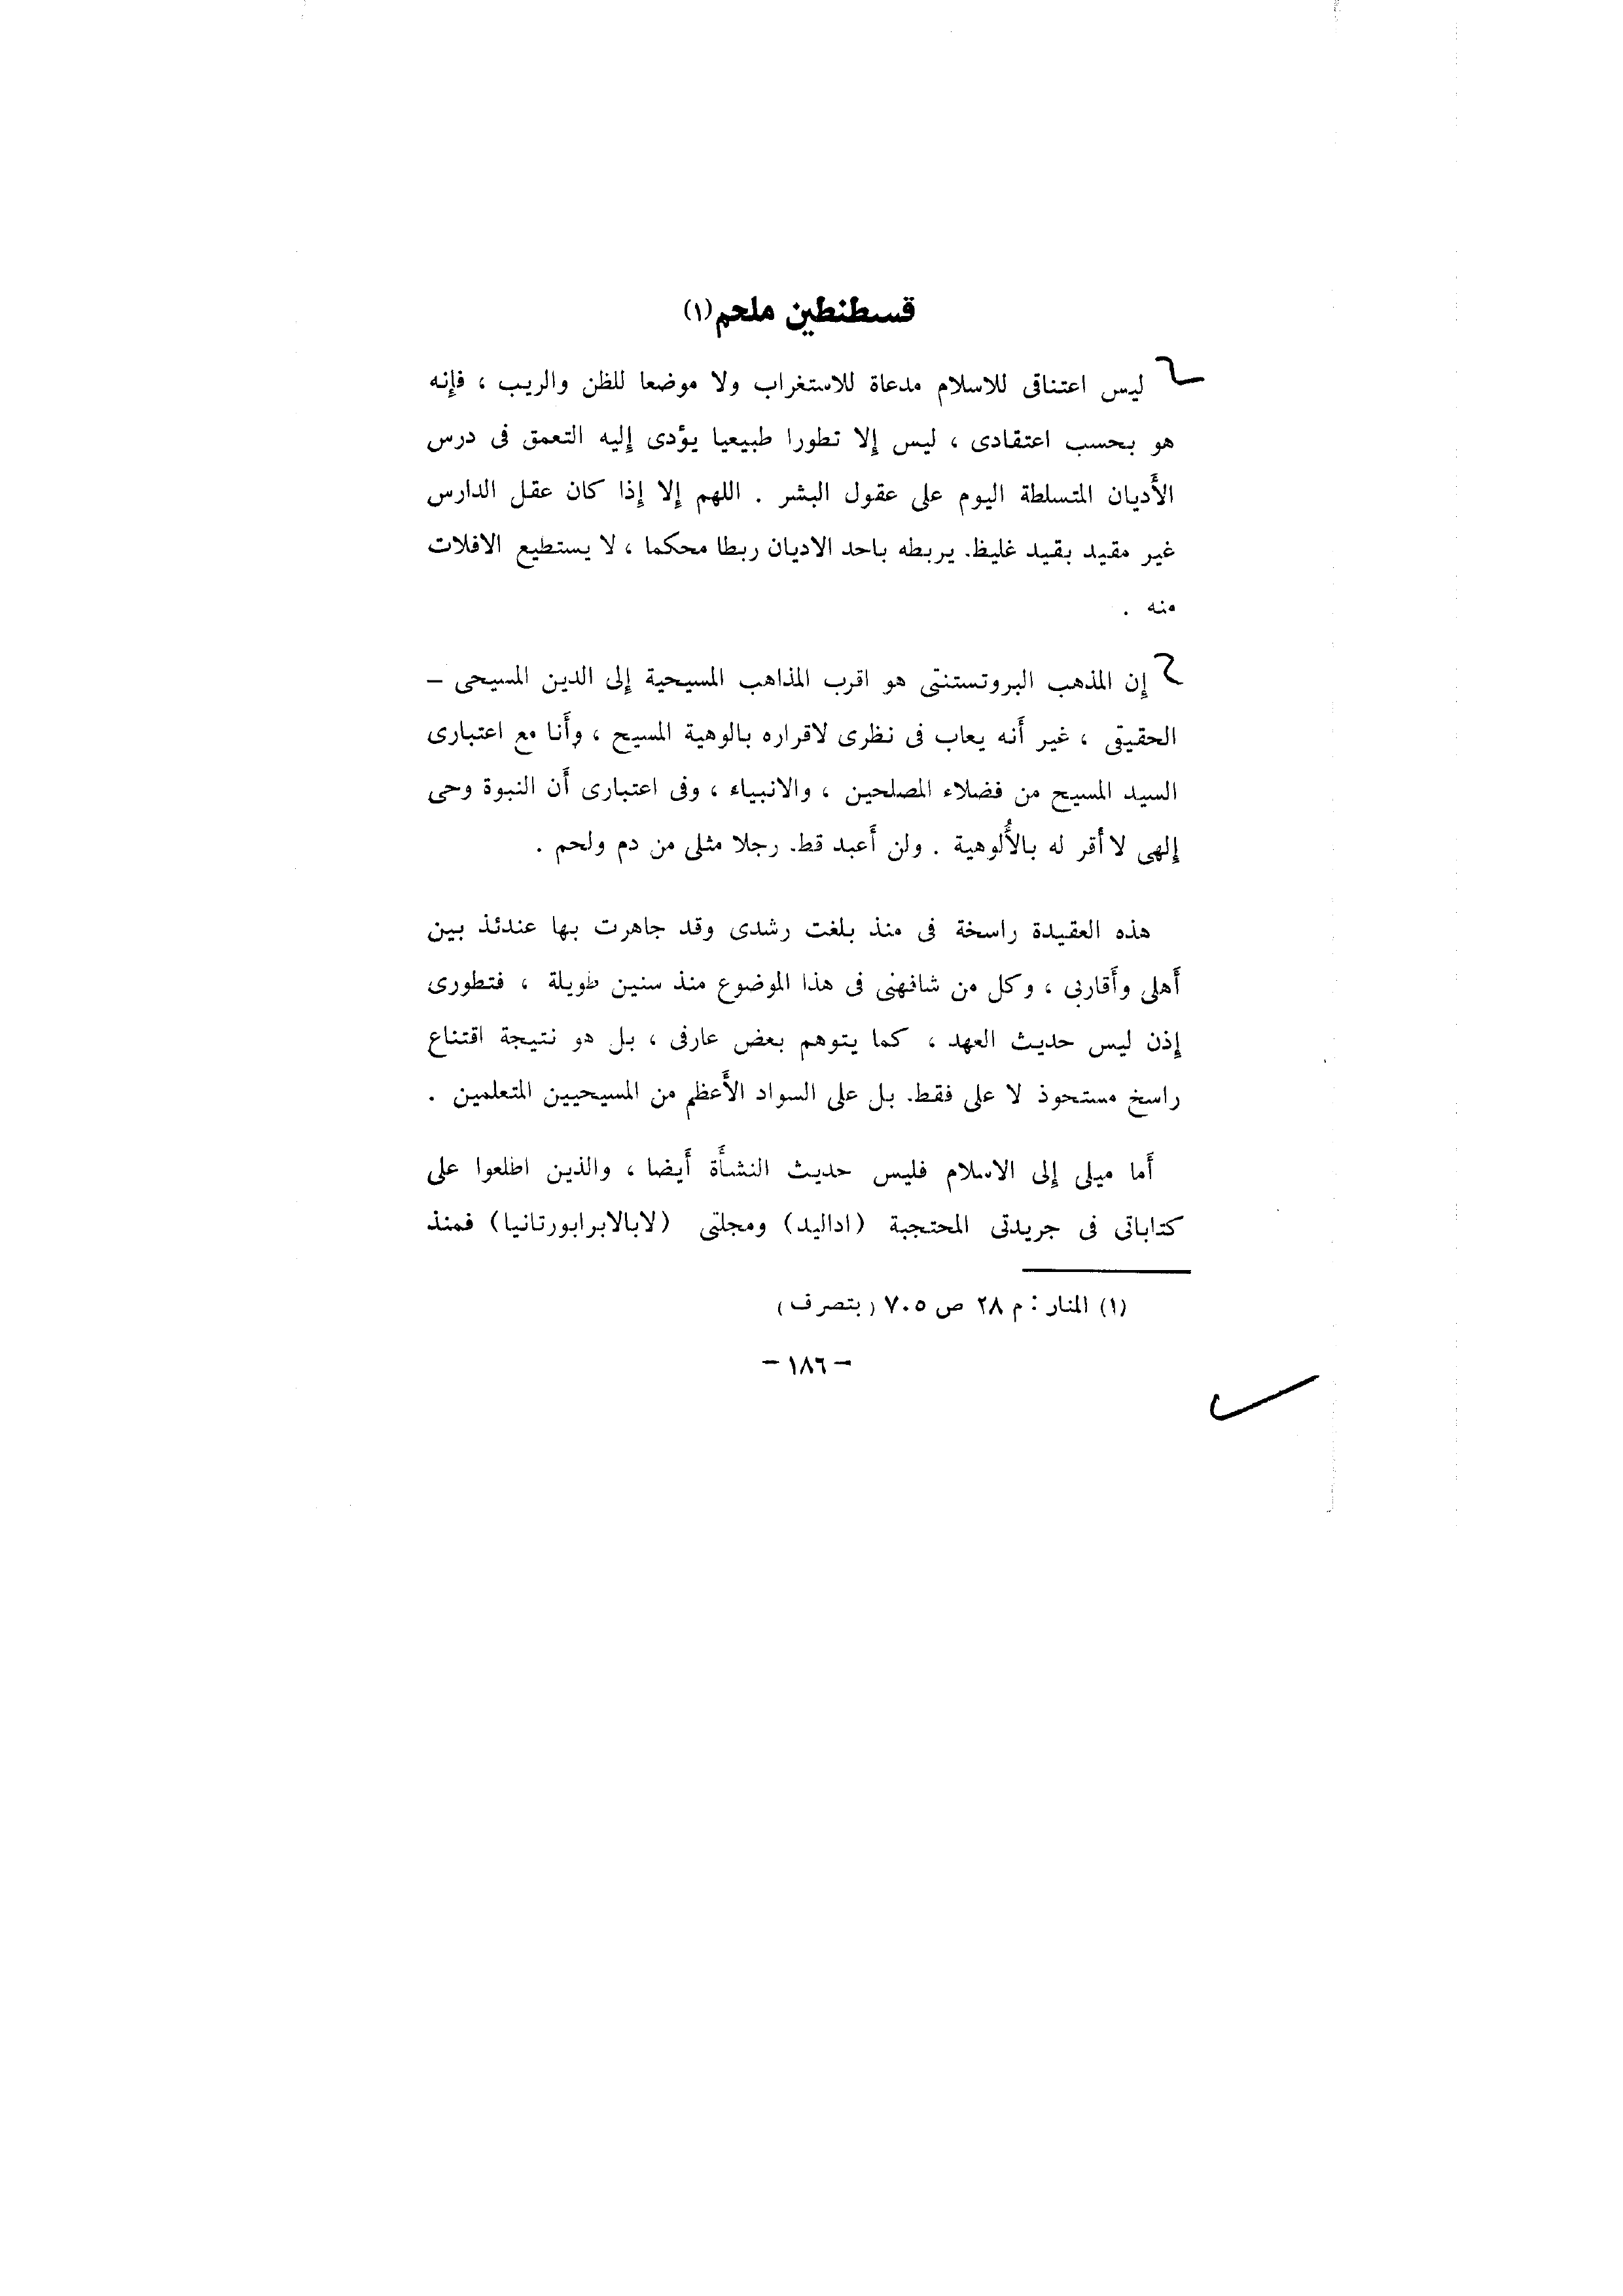 قسطنطين ملحم (١)
ليس اعتناقى للاسلام مدعاة للاستغراب ولا موضعا للظن والريب ، فإنه
هو بحسب اعتقادى ، ليس إلا تطورا طبيعيا يؤدى إليه التعمق فى درس
الأديان المتسلطة اليوم على عقول البشر . اللهم إلا إذا كان عقل الدارس
غير مقيد بقيد غليظ يربطه باحد الاديان ربطا محكما ، لا يستطيع الافلات
منه .
إن المذهب البروتستنتى هو اقرب المذاهب المسيحية إلى الدين المسيحى –
الحقيقى ، غير أنه يعاب فى نظرى لاقراره بالوهية المسيح ، وأنا مع اعتبارى
السيد المسيح من فضلاء المصلحين ، والانبياء ، وفى اعتبارى أن النبوة وحى
إلهى لا أقر له بالألوهية . ولن أعبد قط رجلا مثلى من دم ولحم .
هذه العقيدة راسخة فى منذ بلغت رشدى وقد جاهرت بها عندئذ بين
أهلى وأقاربى ، وكل من شافهنى فى هذا الموضوع منذ سنين طويلة ، فتطورى
إذن ليس حديث العهد ، كما يتوهم بعض عارفى ، بل هو نتيجة اقتناع
راسخ مستحوذ لا على فقط بل على السواد الأعظم من المسيحيين المتعلمين .
أما ميلى إلى الاسلام فليس حديث النشأة أيضا ، والذين اطلعوا على
كتاباتى فى جريدتى المحتجبة (اداليد) ومجلتى (لابالابرابورتانيا) فمنذ
(١) المنار : م ٢٨ ص ٧٠٥ (بتصرف)
– ١٨٦ –